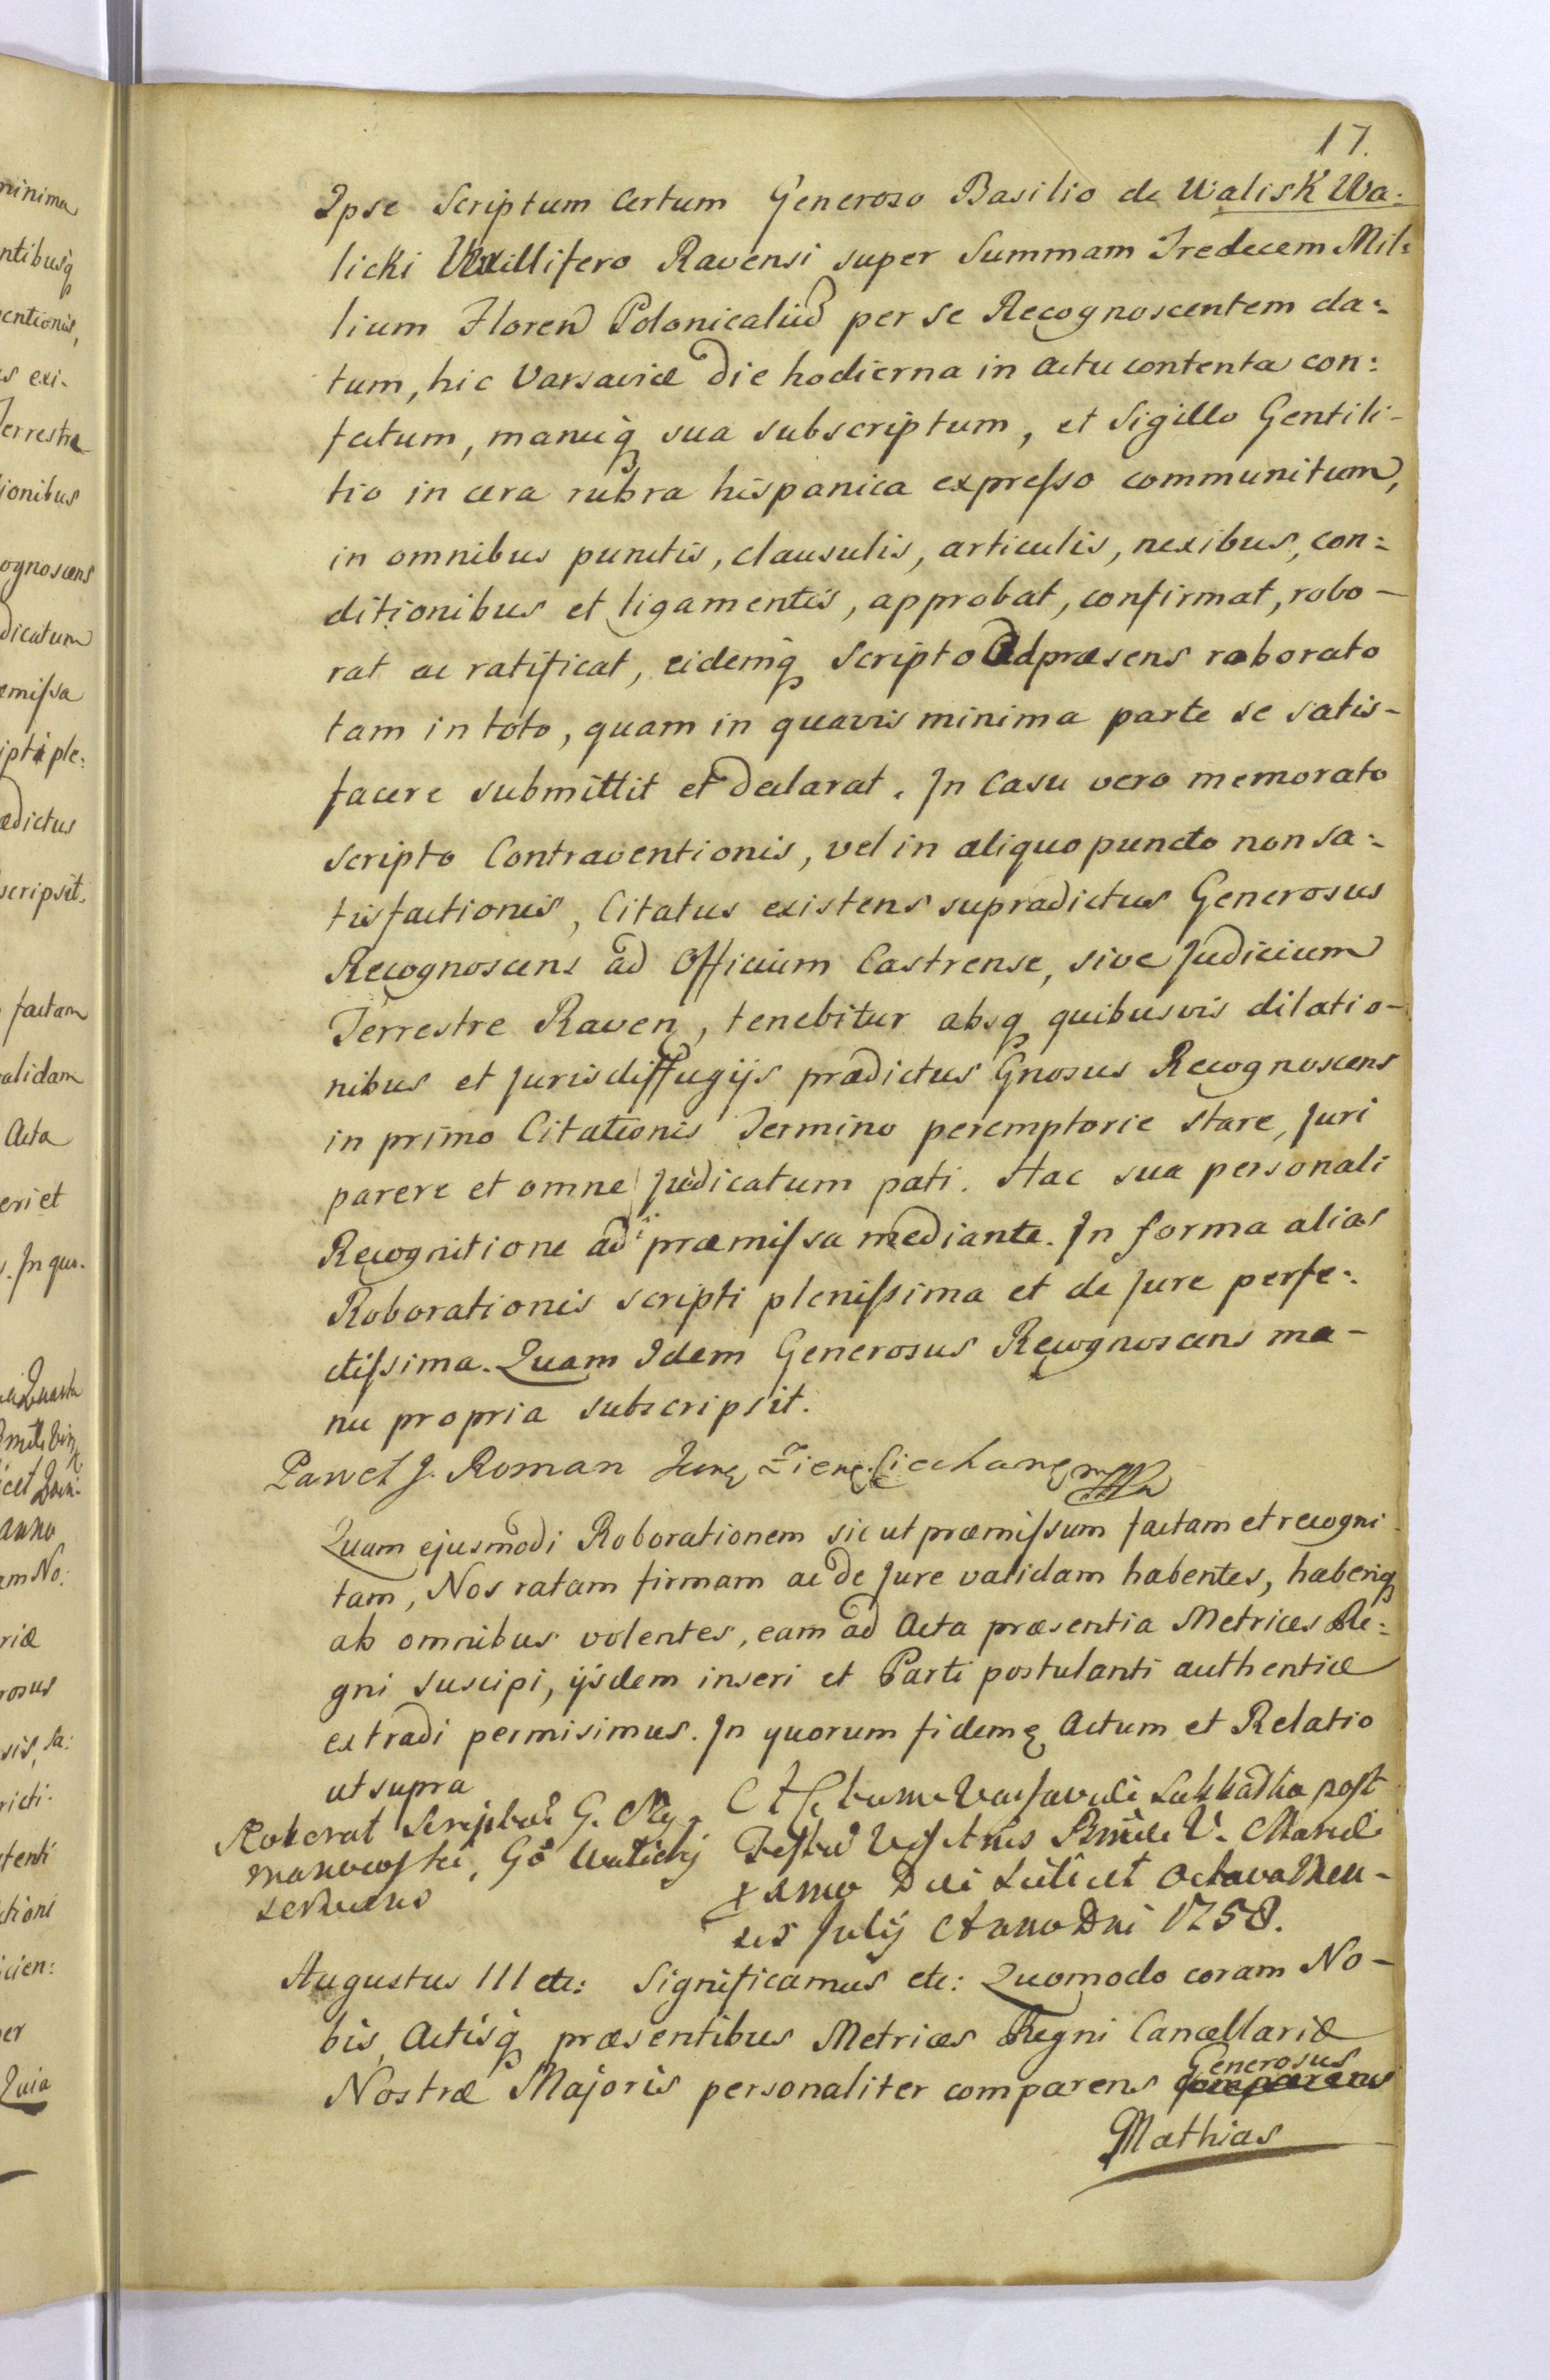 17.
Ipse Scriptum Certum Generoso Basilio de Walisk Wa:
licki Vexillifero Ravensi super Summam Tredecem Mil:
lium Floren Polonicaliu per se Recognoscentem da:
tum, hic Varsaviæ Die hodierna in Actu contenta con:
fectum, manuq sua subscriptum, et Sigillo Gentili-
tio in cera rubra hispanica expresso communitum,
in omnibus punctis, clausulis, articulis, nexibus, con:
ditionibus et ligamentis, approbat, confirmat, robo-
rat ac ratificat, eidemq Scripto Ad præsens roborato
tam in toto, quam in quavis minima parte se satis-
facere submittit et Declarat. In Casu vero memorato
Scripto Contraventionis, vel in aliquo puncto non sa:
tisfactionis, Citatus existens supradictus Generosus
Recognoscens ad Officium Castrense, sive Judicium
Terrestre Raven, tenebitur absq quibusvis dilatio-
nibus et Juris diffugijs prædictus Gnosus Recognoscens
in primo Citationis Termino peremptorie stare, Juri
parere et omne Judicatum pati. Hac sua personali
Recognitione ad præmissa mediante. In forma alias
Roborationis scripti plenissima et de Jure perfe:
ctissima. Quam Idem Generosus Recognoscens ma-
nu propria subscripsit.
Paweł J. Roman
Quam ejusmodi Roborationem sic ut præmissum factam et recogni
tam, Nos ratam firmam ac de Jure validam habentes, haberiq
ab omnibus volentes, eam ad Acta præsentia Metrices Re:
gni suscipi, ijsdem inseri et Parti postulanti authentice
extradi permisimus. In quorum fidem Actum et Relatio
ut supra
Roborat Scriptum G. Ry
manowski, Go Walicki
serviens
Actum Varsaviæ Sabbatho post
Festum Vis Annis Bmæ V. Mariæ
xamo Die Scilicet Octava Men-
sis Julij Anno Dni 1758.
Augustus III etc: Significamus etc: Quomodo coram No-
bis, Actisq præsentibus Metrices Regni Cancellariæ
Nostræ Majoris personaliter comparens Generosus
Mathias